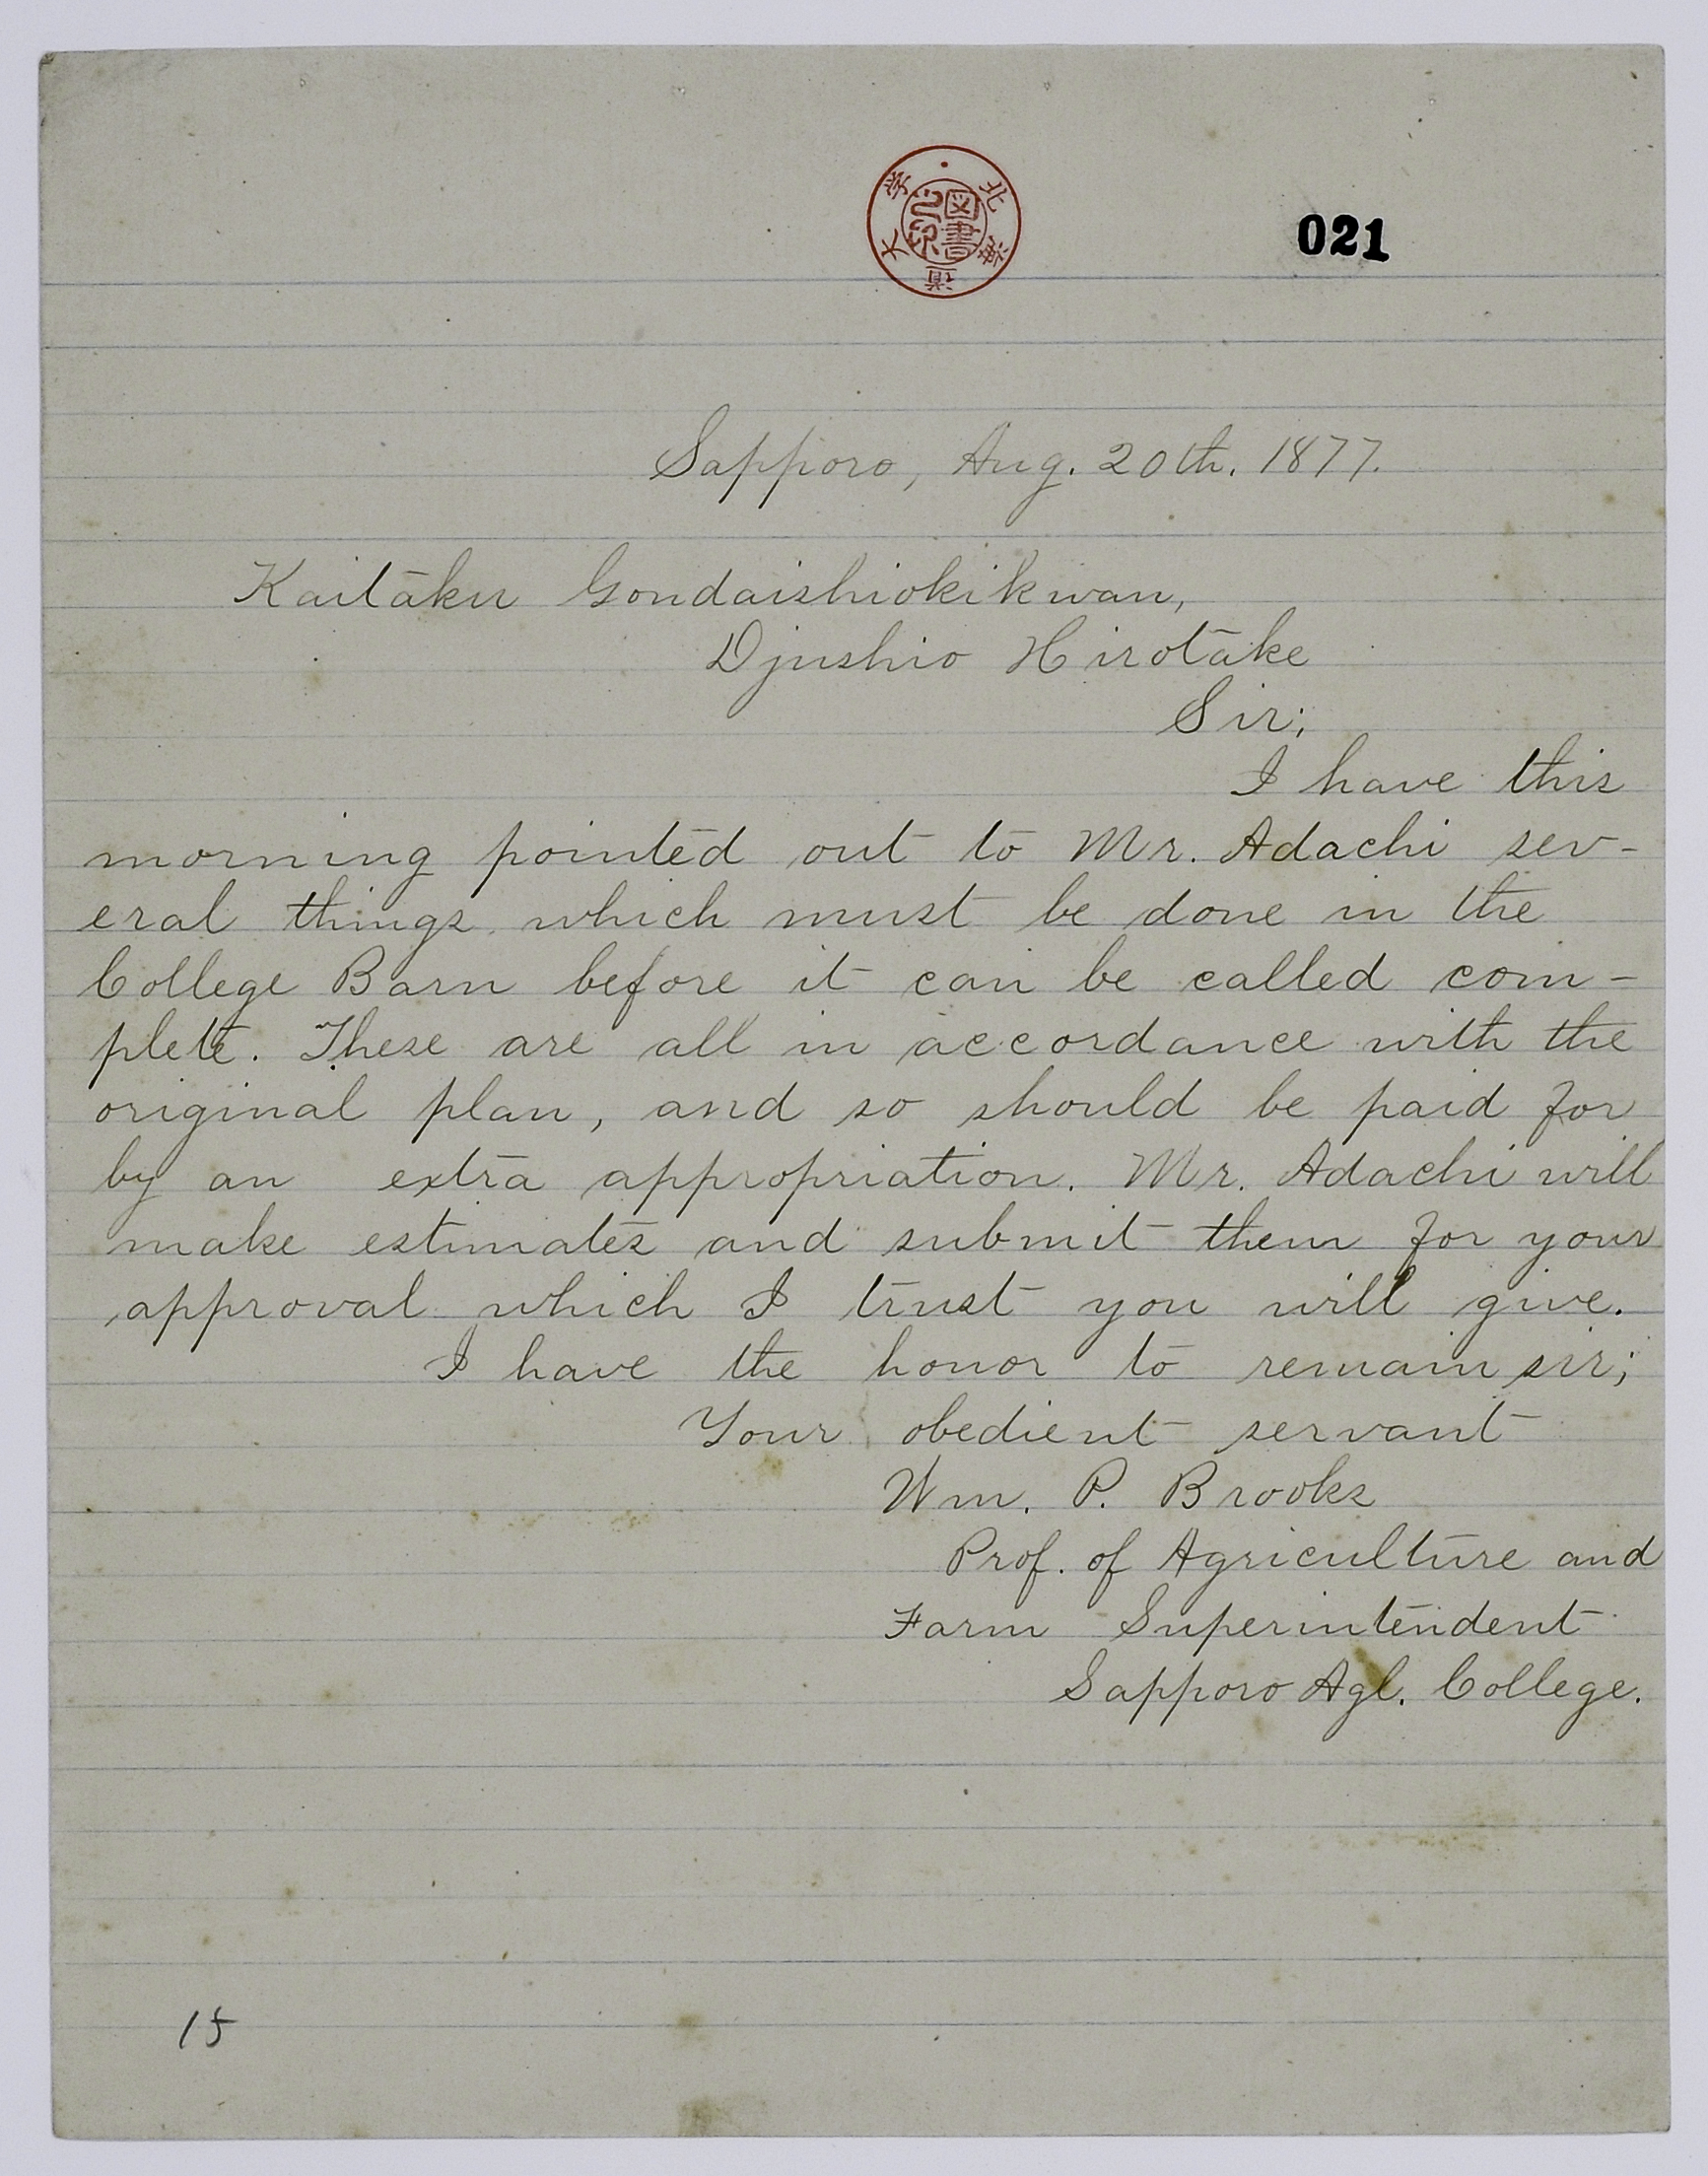 北海道大学
図書之印
021
Sapporo, Aug. 20th. 1877.
Kaitaku Gondaishiokikwan,
Djushio Hirotake
Sir;
I have this
morning pointed out to Mr. Adachi sev-
eral things which must be done in the
College Barn before it can be called com-
plete. These are all in accordance with the
original plan, and so should be paid for
by an extra appropriation. Mr. Adachi will
make estimates and submit them for your
approval which I trust you will give.
I have the honor to remain sir;
Your obedient servant
Wm. P. Brooks
Prof. of Agriculture and
Farm Superintendent
Sapporo Agl. College.
15